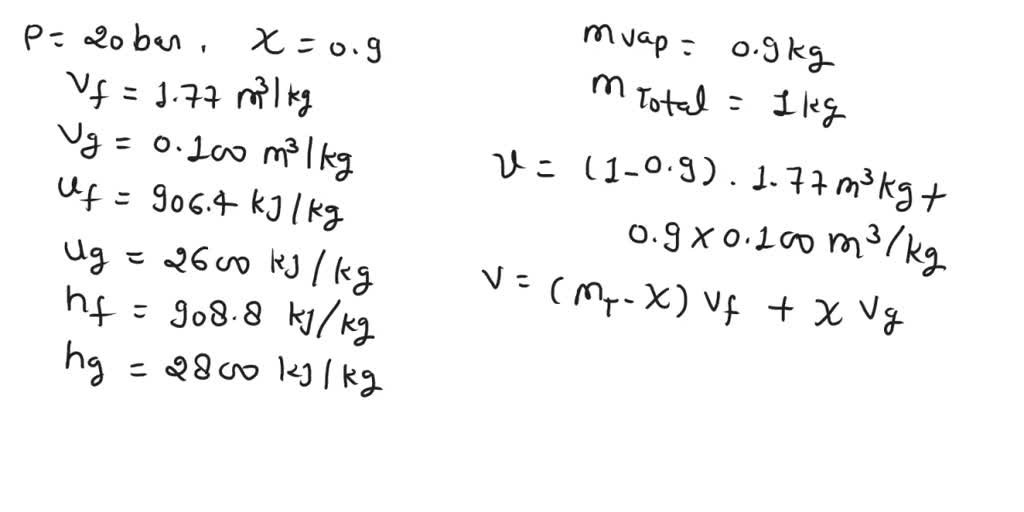 P = 20 bar, x = 0.9
Vf = 1.77 m³/kg
Vg = 0.100 m³/kg
uf = 906.4 kJ/kg
ug = 2600 kJ/kg
hf = 908.8 kJ/kg
hg = 2800 kJ/kg
m vap = 0.9 kg
m Total = 1 kg
v = (1-0.9) . 1.77 m³kg +
0.9 x 0.100 m³/kg
v = (mT - x) Vf + x Vg